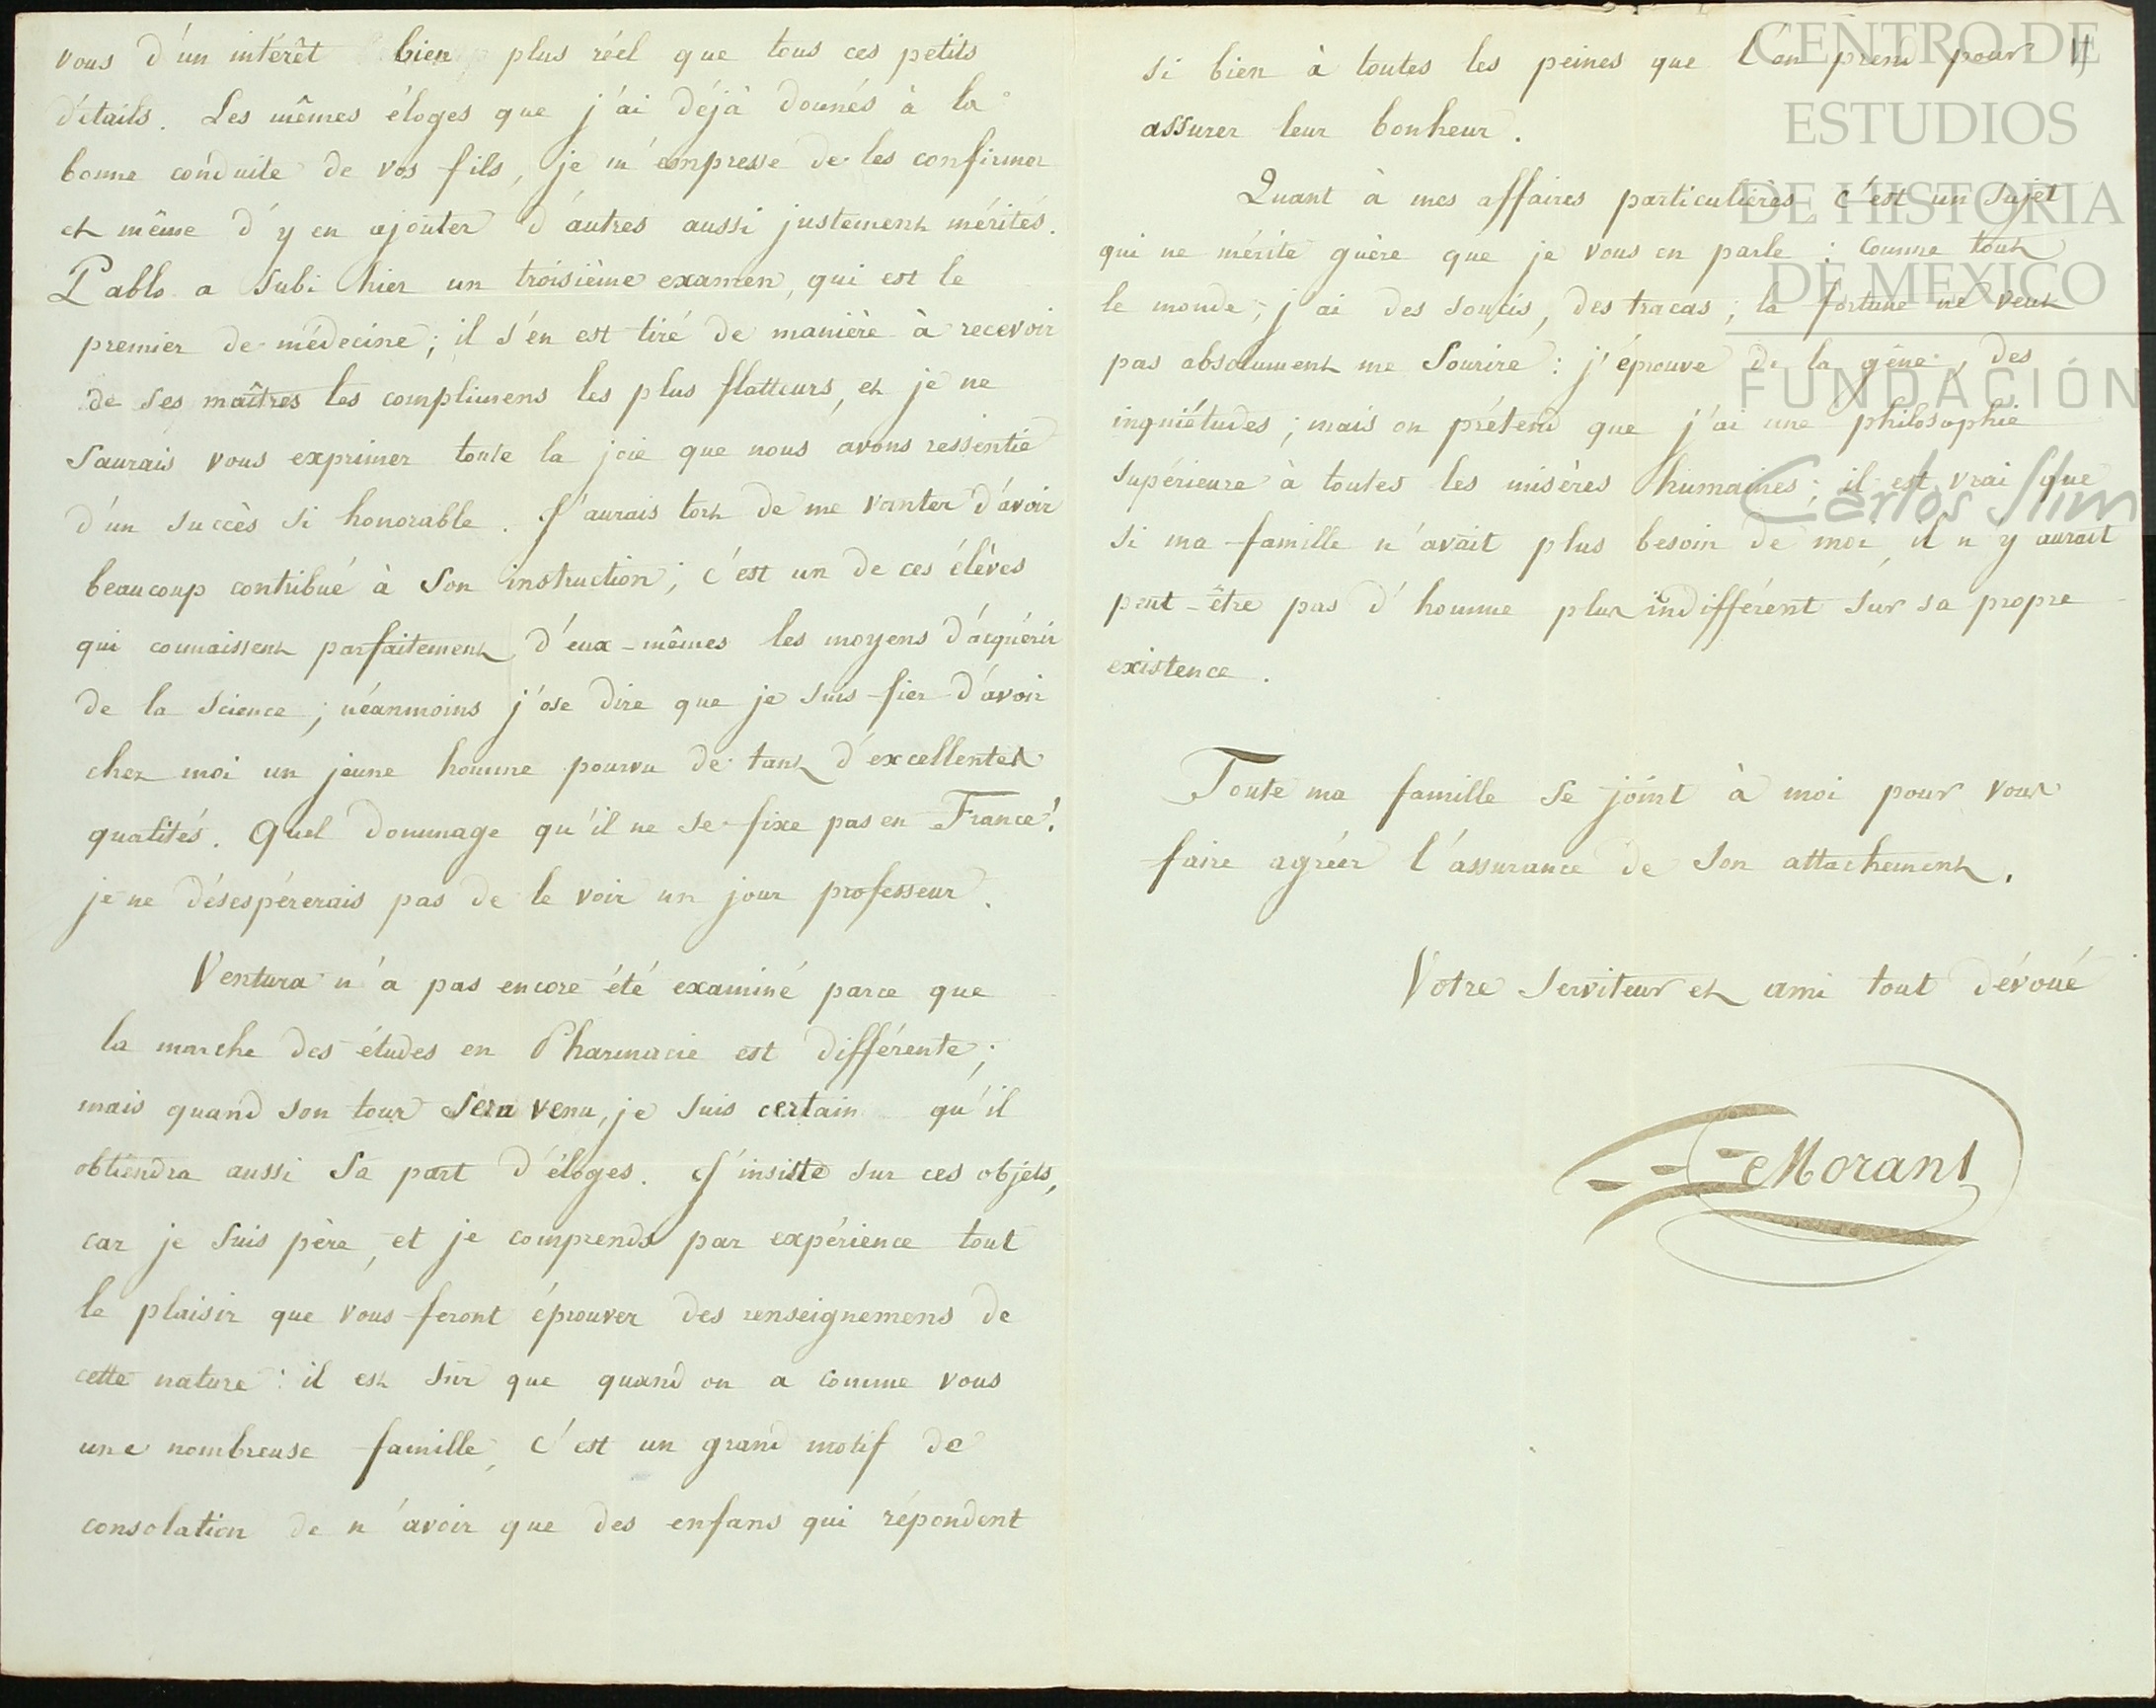 vous d'un intérêt bien plus réel que tous ces petits
détails. Les mêmes éloges que j'ai déjà donnés à la
bonne conduite de vos fils, je m'empresse de les confirmer
et même d'y en ajouter d'autres aussi justement mérités.
Pablo a subi hier un troisième examen, qui est le
premier de médecine; il s'en est tiré de manière à recevoir
de ses maîtres les complimens les plus flatteurs, et je ne
saurais vous exprimer toute la joie que nous avons ressentie
d'un succès si honorable. J'aurais tort de me vanter d'avoir
beaucoup contribué à son instruction; c'est un de ces élèves
qui connaissent parfaitement d'eux-mêmes les moyens d'acquérir
de la science; néanmoins j'ose dire que je suis fier d'avoir
chez moi un jeune homme pourvu de tant d'excellentes
qualités. Quel dommage qu'il ne se fixe pas en France!
je ne désespérerais pas de le voir un jour professeur.
Ventura n'a pas encore été examiné parce que
la marche des études en Pharmacie est différente;
mais quand son tour sera venu, je suis certain qu'il
obtiendra aussi sa part d'éloges. J'insiste sur ces objets,
car je suis père, et je comprends par expérience tout
le plaisir que vous feront éprouver des renseignemens de
cette nature: il est sûr que quand on a comme vous
une nombreuse famille, c'est un grand motif de
consolation de n'avoir que des enfans qui répondent
si bien à toutes les peines que l'on prend pour
assurer leur bonheur.
Quant à mes affaires particulières c'est un sujet
qui ne mérite guère que je vous en parle: comme tout
le monde, j'ai des soucis, des tracas; la fortune ne veut
pas absolument me sourire: j'éprouve de la gêne, des
inquiétudes; mais on prétend que j'ai une philosophie
supérieure à toutes les misères humaines; il est vrai que
si ma famille n'avait plus besoin de moi, il n'y aurait
peut-être pas d'homme plus indifférent sur sa propre
existence.
Toute ma famille se joint à moi pour vous
faire agréer l'assurance de son attachement.
Votre serviteur et ami tout dévoué
Morant
CENTRO DE
ESTUDIOS
DE HISTORIA
DE MEXICO
FUNDACIÓN
Carlos Slim